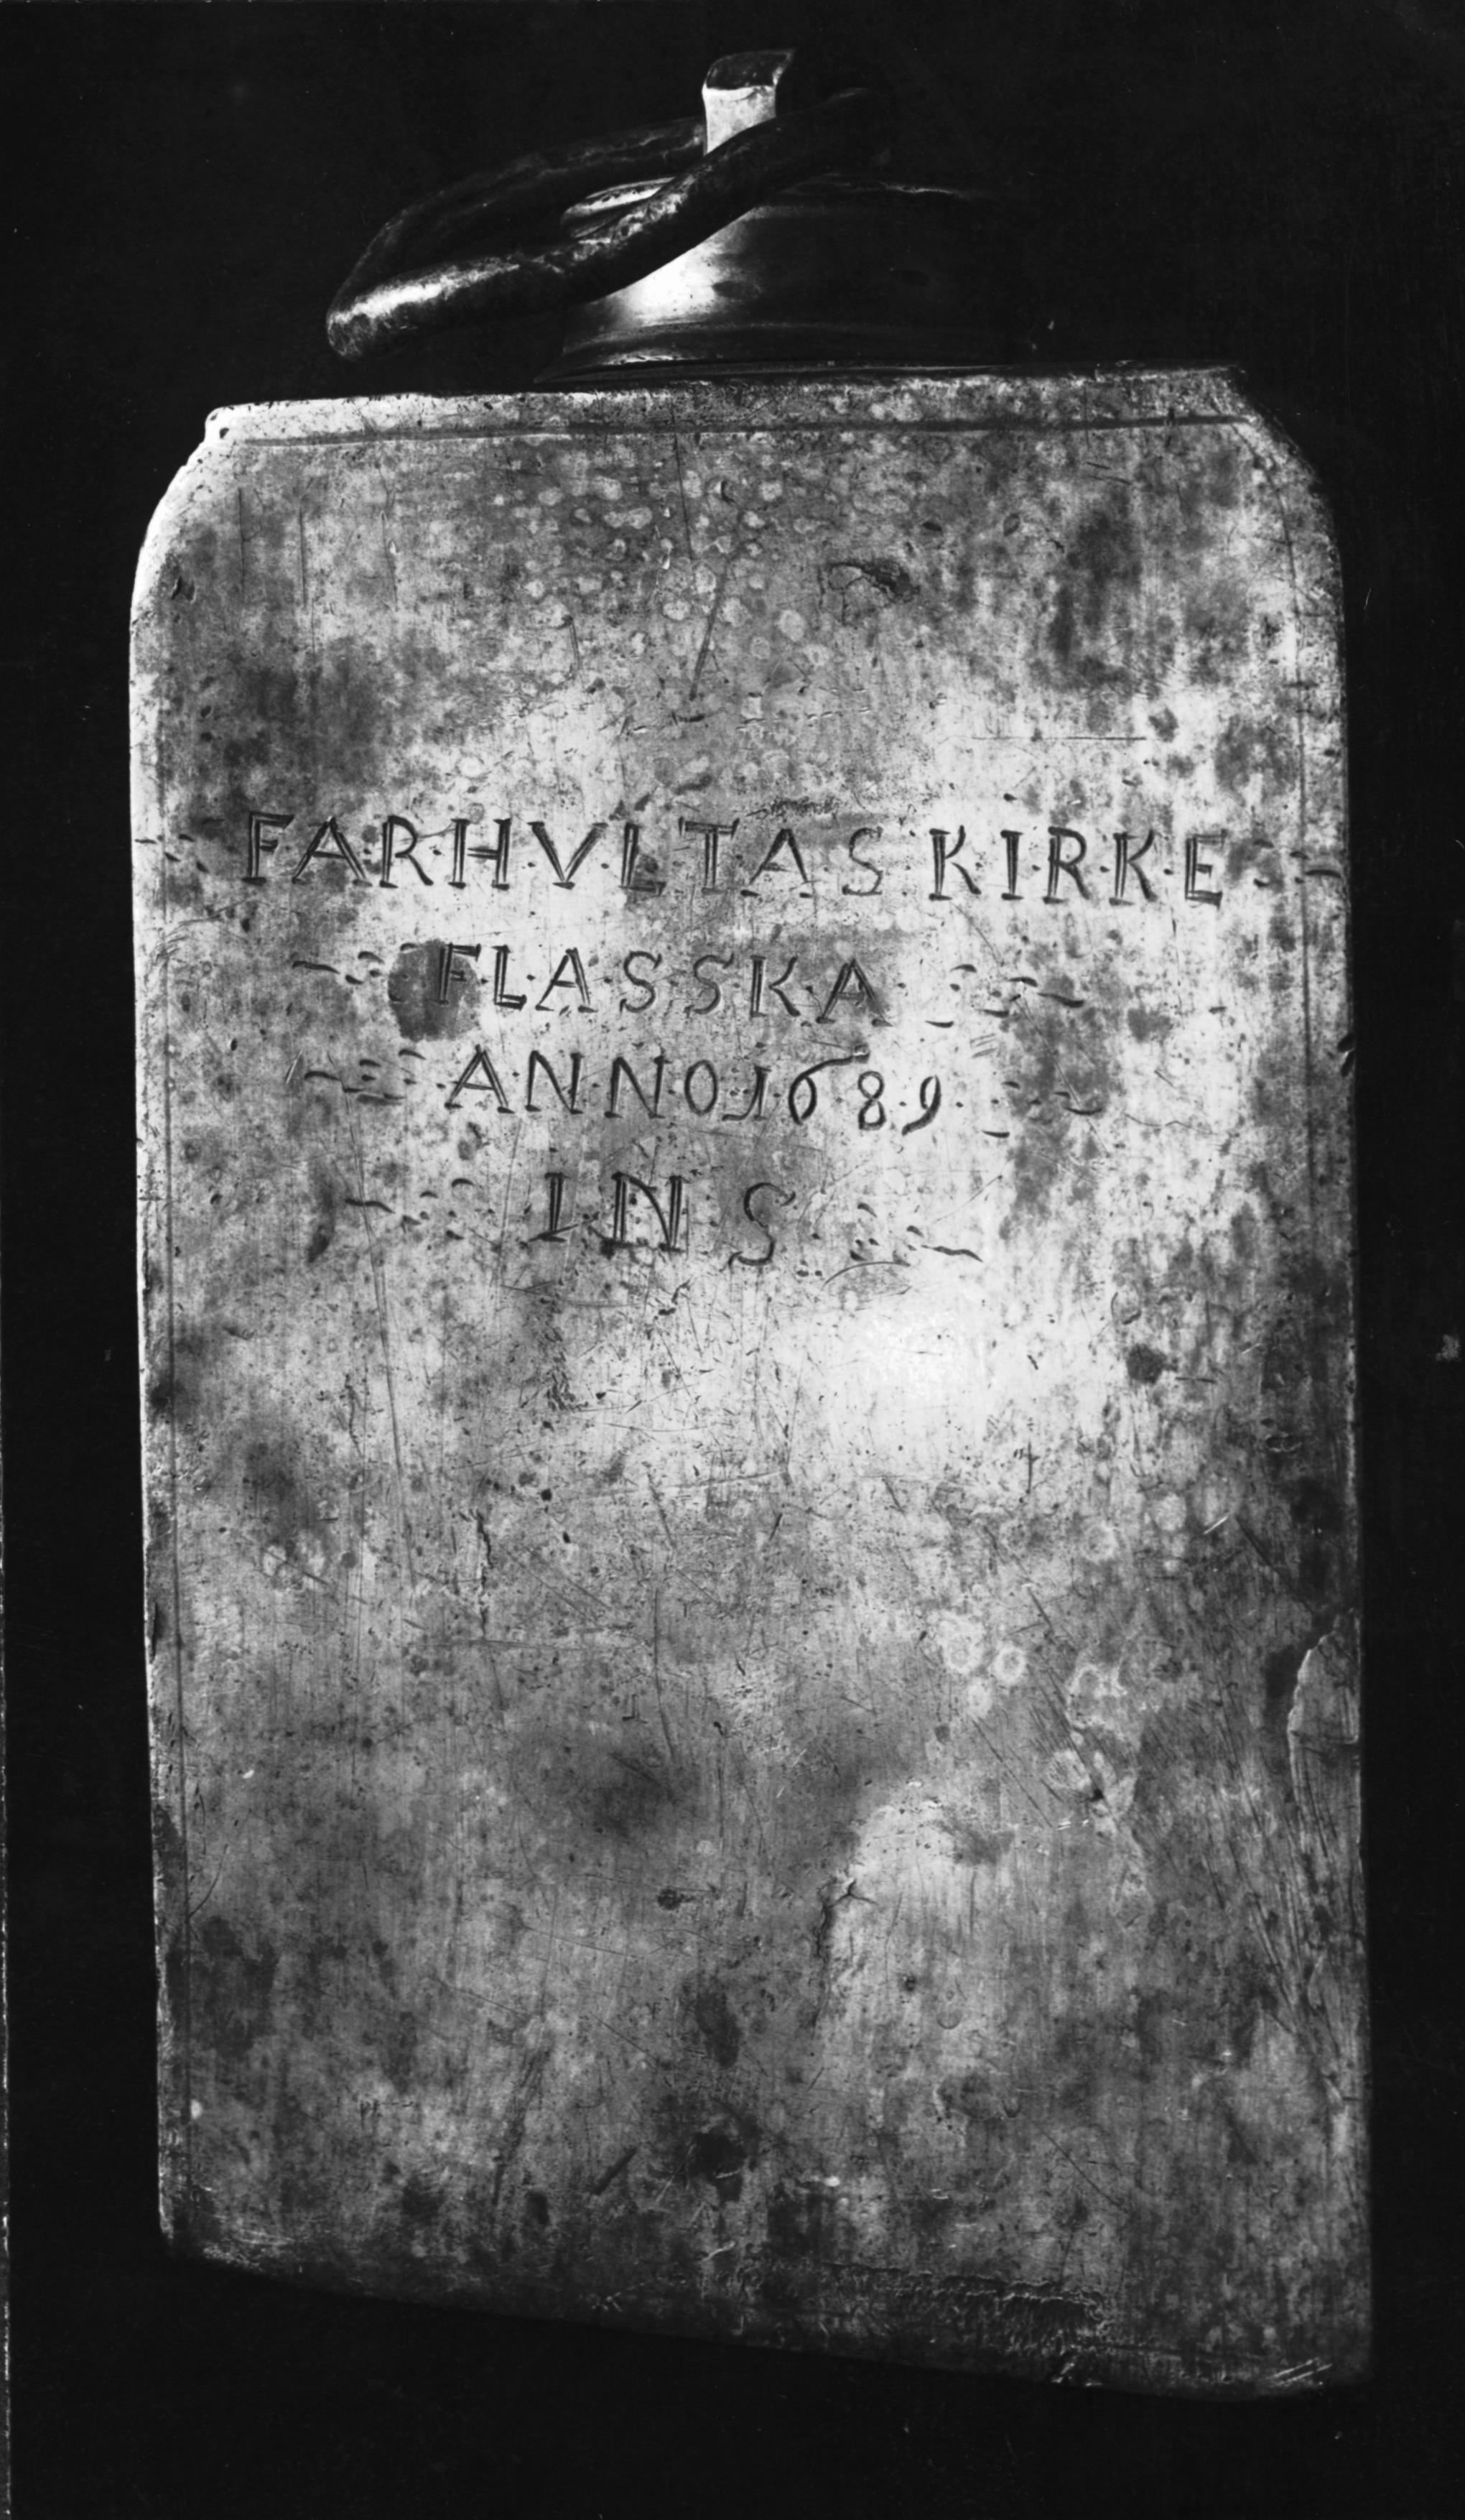 FARHVLTAS KIRKE
FLASSKA
ANNO 1689
INS